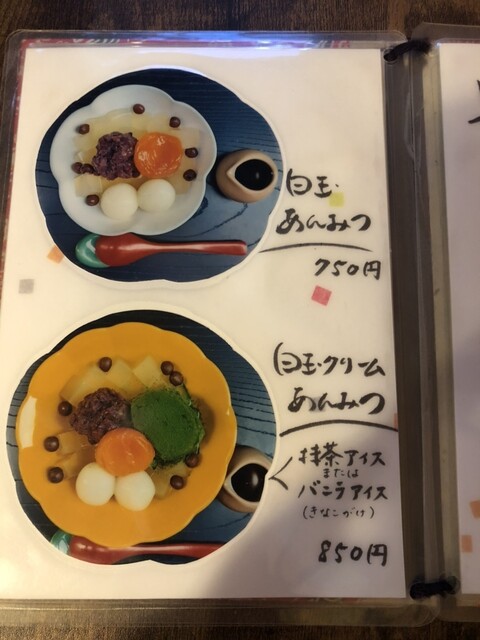 白玉・
あんみつ
750円
白玉・クリーム
あんみつ
抹茶アイス
または
バニラアイス
(きなこがけ)
850円